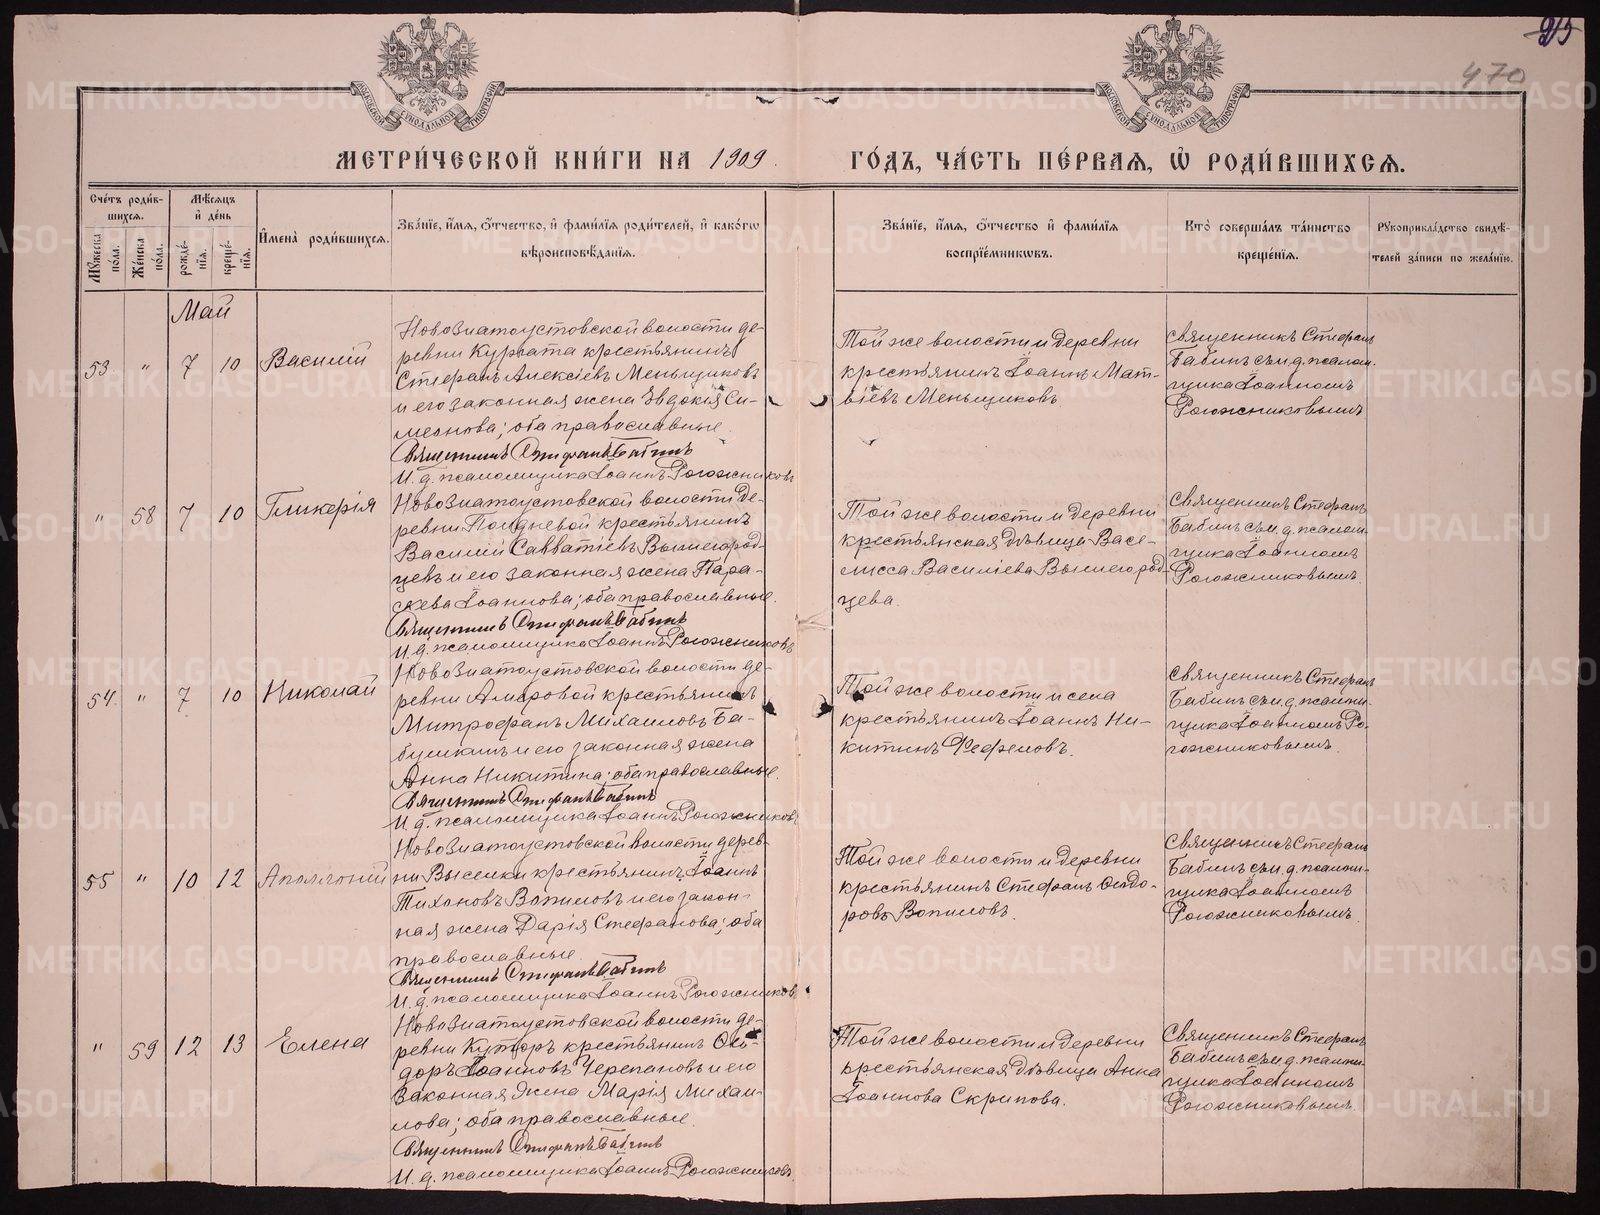 215
470
МОСКОВСКОЙ СѴНОДАЛЬНОЙ ТИПОГРАФІИ
МОСКОВСКОЙ СѴНОДАЛЬНОЙ ТИПОГРАФІИ
МЕТРИ́ЧЕСКОЙ КНИ́ГИ НА 1909 ГО́ДЪ, ЧА́СТЬ ПЕ́РВАЯ, Ѿ РОДИ́ВШИХСЯ.
Сче́тъ роди́вшихся.
Мꙋ́жеска по́ла.
Же́нска по́ла.
Мѣ́сяцъ и҆ де́нь
рожде́нїя.
креще́нїя.
И҆мена̀ роди́вшихся.
Зва́нїе, и҆́мя, ѻ҆́тчество, и҆ фами́лїя роди́телей, и҆ како́гѡ
вѣроисповѣ́данїя.
Зва́нїе, и҆́мя, ѻ҆́тчество и҆ фами́лїя
воспрїе́мникѡвъ.
Кто̀ соверша́лъ та́инство
креще́нїя.
Рꙋкоприкла́дство свидѣ́телей за́писи по жела́нїю.
Май
53 " 7 10 Василій
Новозлатоустовской волости де-
ревни Кургата крестьянинъ
Стефанъ Алексіевъ Меньщиковъ
и его законная жена Евдокія Си-
меонова; оба православные.
Священникъ Стефанъ Бабинъ
И. д. псаломщика Іоаннъ Рогожниковъ
Той же волости и деревни
крестьянинъ Іоаннъ Мат-
віевъ Меньщиковъ
священникъ Стефанъ
Бабинъ съ и. д. псалом-
щика Іоанномъ
Рогожниковымъ
" 58 7 10 Гликерія
Новозлатоустовской волости де-
ревни Полдневой крестьянинъ
Василій Савватіевъ Вышегород-
цевъ и его законная жена Пара-
скева Іоаннова; оба православные.
Священникъ Стефанъ Бабинъ
И. д. псаломщика Іоаннъ Рогожниковъ
Той же волости и деревни
крестьянская дѣвица Васи-
лисса Василіева Вышегород-
цева.
Священникъ Стефанъ
Бабинъ съ и. д. псалом-
щика Іоанномъ
Рогожниковымъ.
54 " 7 10 Николай
Новозлатоустовской волости де-
ревни Амировой крестьянинъ
Митрофанъ Михаиловъ Ба-
бушкинъ и его законная жена
Анна Никитина; оба православные.
Священникъ Стефанъ Бабинъ
И. д. псаломщика Іоаннъ Рогожниковъ
Той же волости и села
крестьянинъ Іоаннъ Ни-
китинъ Фефеловъ.
Священникъ Стефанъ
Бабинъ съ и. д. псалом-
щика Іоанномъ Ро-
гожниковымъ.
55 " 10 12 Аполлоній
Новозлатоустовской волости дерев-
ни Выселки крестьянинъ Іоаннъ
Тихоновъ Вопиловъ и его закон-
ная жена Дарія Стефанова; оба
православные.
Священникъ Стефанъ Бабинъ
И. д. псаломщика Іоаннъ Рогожниковъ
Той же волости и деревни
крестьянинъ Стефанъ Ѳеодо-
ровъ Вопиловъ.
Священникъ Стефанъ
Бабинъ съ и. д. псалом-
щика Іоанномъ
Рогожниковымъ.
" 59 12 13 Елена
Новозлатоустовской волости де-
ревни Хуторъ крестьянинъ Ѳео-
доръ Іоанновъ Черепановъ и его
законная жена Марія Михаи-
лова; оба православные.
Священникъ Стефанъ Бабинъ
И. д. псаломщика Іоаннъ Рогожниковъ.
Той же волости и деревни
крестьянская дѣвица Анна
Іоаннова Скрипова.
Священникъ Стефанъ
Бабинъ съ и. д. псалом-
щика Іоанномъ
Рогожниковымъ.
METRIKI.GASO-URAL.RU